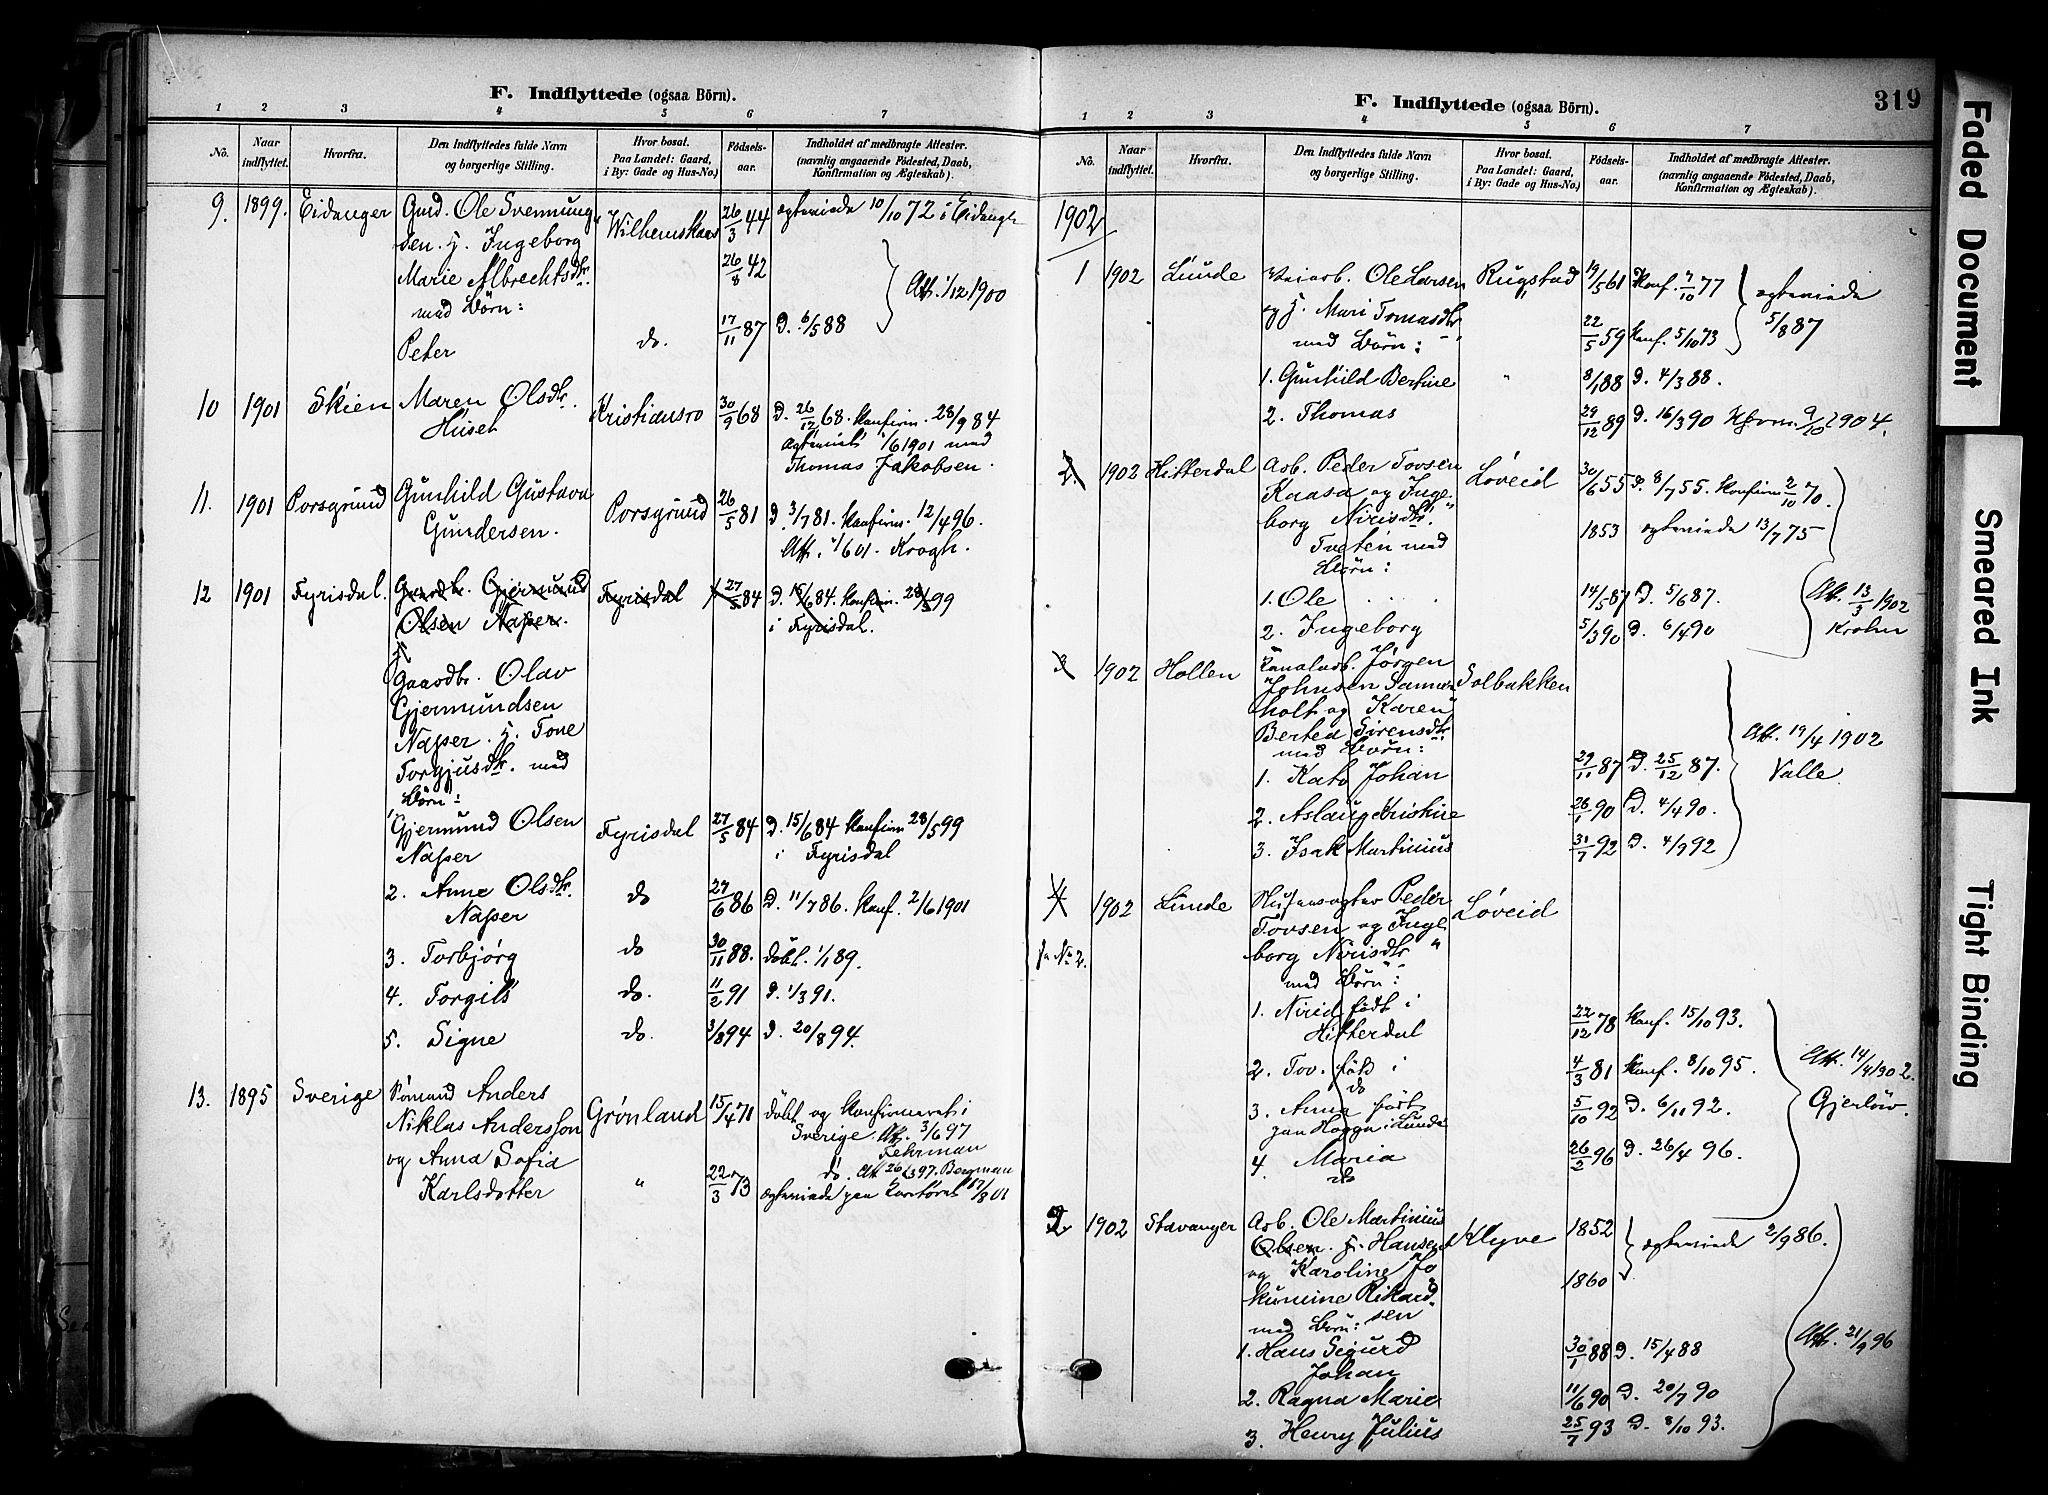 F. Indflyttede (ogsaa Börn).
1 2 3 4 5 6 7
No. Naar indflyttet. Hvorfra. Den Indflyttedes fulde Navn og borgerlige Stilling. Hvor bosat. Paa Landet: Gaard, i By: Gade og Hus-No.) Fødsels-aar. Indholdet af medbragte Attester. (navnlig angaaende Födested, Daab, Konfirmation og Ægteskab).
9. 1899. Eidanger Gmd. Ole Svennung 26/3 44 ægteviede 10/10 72 i Eidanger
sen. H. Ingeborg
Marie Albrechtsdtr. 26/8 42 Att. 1/12 1900
med Börn:
Peter do. 17/11 87 D. 6/5 88
10 1901 Skien Maren Olsdtr. Kristiansro 30/9 68 D. 26/12 68. Konfirm. 28/9 84
Huset
Thomas Jakobsen.
11. 1901 Porsgrund Gunhild Gustava Porsgrund 26/5 81 D. 3/7 81. Konfirm. 12/4 96.
Gundersen. Krogh.
12 1901 Fyrisdal. Gaardbr. Gjermund Fyrisdal 27/5 84 D. 15/6 84. Konfirm. 28/5 99
Olsen Napser. i Fyrisdal.
Gaardbr. Olav
Gjermundsen
Napser. H. Tone
Torgjusdtr. med
Börn:
Gjermund Olsen Fyrisdal 27/5 84 D. 15/6 84 Konfirm 28/5 99
Napser i Fyrisdal
2. Anne Olsdtr. do 27/6 86 D. 11/7 86. Konf. 2/6 1901
Napser
3. Torbjørg do 30/11 88. Döbt. 1/1 89.
4. Torgils do. 11/2 91 D. 1/3 91.
5. Signe do. 3/8 94 D. 20/8 94.
13. 1895 Sverige Anders Grønland 15/4 71 Döbt og Konfirmeret i
Niklas Andersson Sverige. Att. 3/6 97
og Anna Sofia Fehrman
Karlsdotter " 22/3 73 do. Att 26/3 97. Bergman
F. Indflyttede (ogsaa Börn). 319
1 2 3 4 5 6 7
No. Naar indflyttet. Hvorfra. Den Indflyttedes fulde Navn og borgerlige Stilling. Hvor bosat. Paa Landet: Gaard, i By: Gade og Hus-No.) Födsels-aar. Indholdet af medbragte Attester. (navnlig angaaende Födested, Daab, Konfirmation og Ægteskab).
1902
1 1902 Lunde Veiarb. Ole Larsen Rugstad 19/5 61 Konf. 7/10 77 ægteviede
og H. Mari Tomasdtr 22/5 59 Konf. 5/10 73 5/8 87
med Börn:
1. Gunhild Bertine " 8/1 88 D. 4/3 88.
2. Thomas 29/12 89 D. 16/3 90
2. 1902 Hitterdal Arb. Peder Tovsen Løveid 30/6 55 D. 8/7 55. Konfirm 2/10 70.
Kaasa og Inge-
borg Nirisdtr. 1853 ægteviede 13/7 75
Tveten med
Börn:
1. Ole 14/5 87 D. 5/6 87. Att. 13/3 1902
2. Ingeborg 5/3 90 D. 6/4 90 Krohn
3 1902 Hollen Kanalarb. Jørgen Solbakken
Johnsen Sanner-
holt og Karen
Bertea Sørensdtr
med Börn: Att. 19/4 1902
1. Kato Johan 27/11 87 D. 25/12 87. Valle
2. Aslaug Kristine 26/1 90 D. 4/4 90.
3. Isak Martinius 31/7 92 D. 4/9 92
4 1902 Lunde Husmogter Peder Løveid
Tovsen og Inge
fr No 2. borg Nirisdtr "
med Börn:
1. Nirid født i 22/12 78 Konf. 15/10 93.
Hitterdal
2. Tov. født i 4/3 81 Konf. 8/10 95. Att. 14/4 1902.
do
3. Anna født 5/10 92 D. 6/11 92. Gjerløw.
paa Hogga i Lunde
4. Maria 26/2 96 D. 26/4 96.
do
2 1902 Stavanger Arb. Ole Martinius Klyve 1852 ægteviede 2/9 86.
Olsen. H. Hansen
og Karoline Jo 1860
kumine Rikard
med Börn: sen
1. Hans Sigurd 30/1 88 D. 15/4 88 Att. 21/9 96
Johan
2. Ragna Marie 11/6 90 D. 20/7 90
3. Henry Julius 25/7 93 D. 8/10 93.
Faded Document
Smeared Ink
Tight Binding